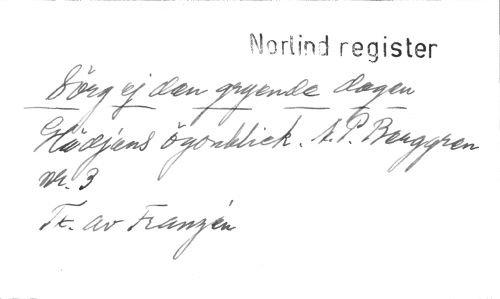 Norlind register
Sörg ej den gryende dagen
Glädjens ögonblick. A.P. Berggren
nr. 3
Tx. av Franzén